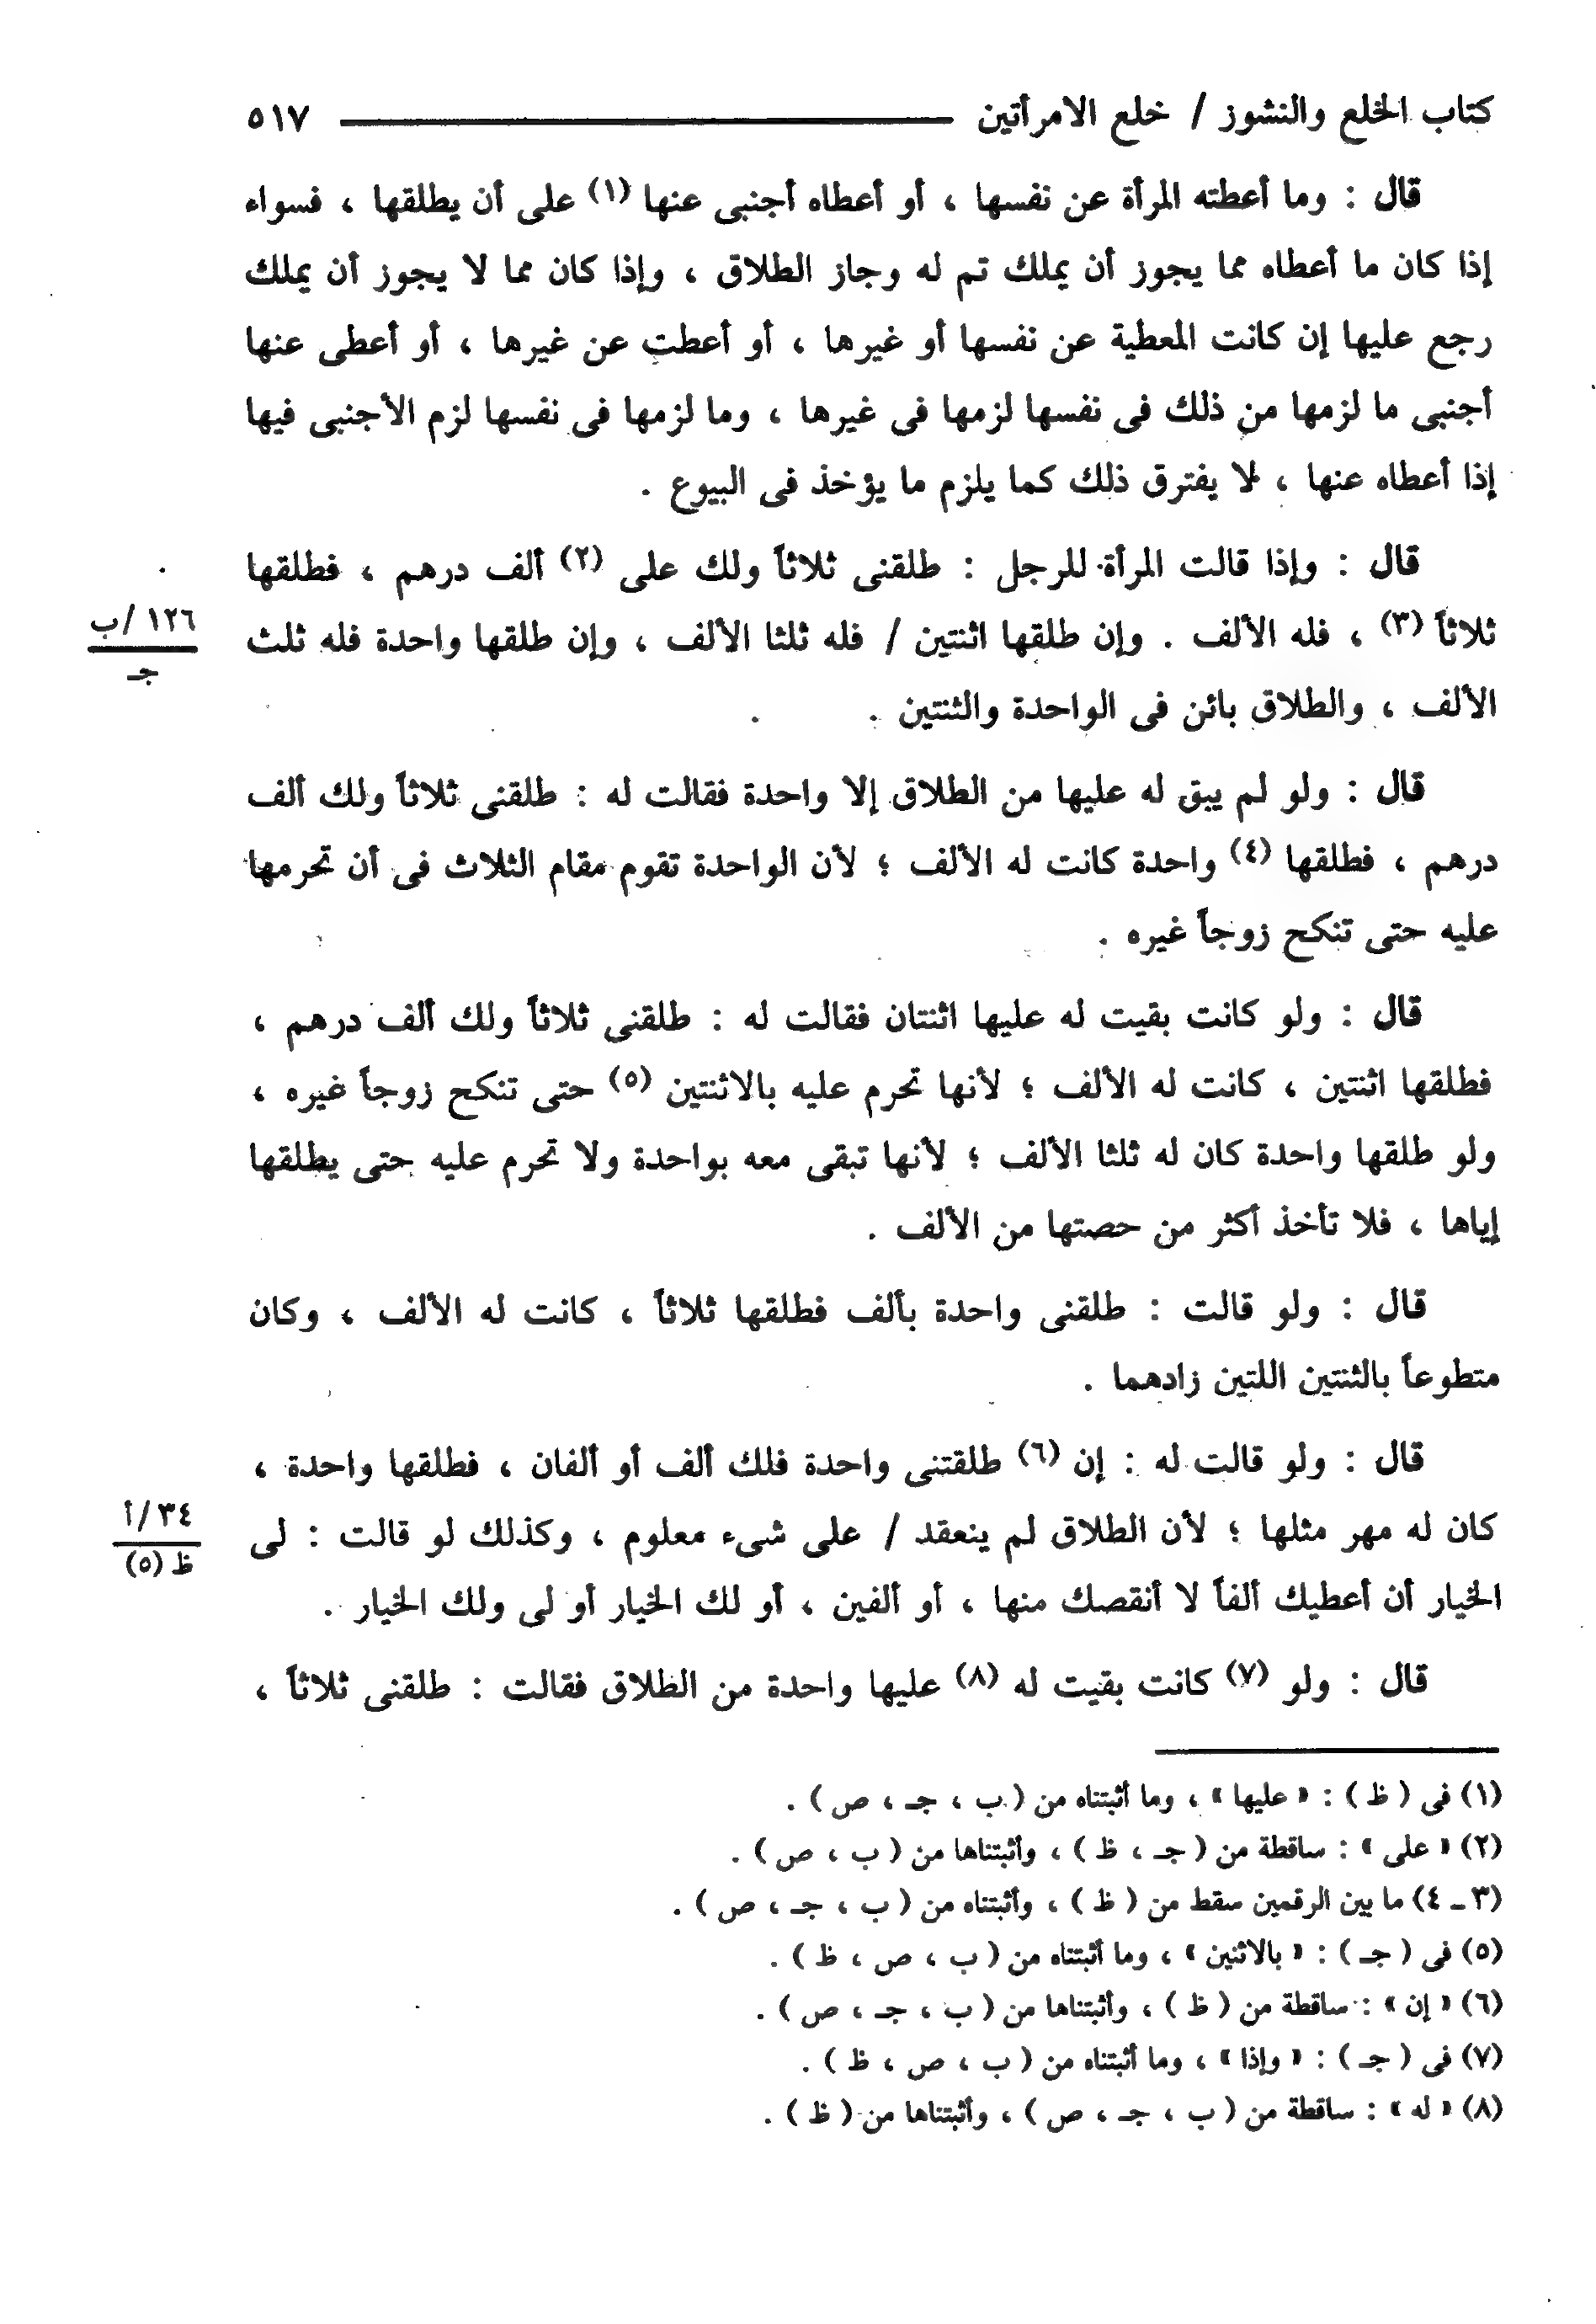 كتاب الخلع والنشوز / خلع الامرأتين ٥١٧
قال : وما أعطته المرأة عن نفسها ، أو أعطاه أجنبى عنها (١) على أن يطلقها ، فسواء
إذا كان ما أعطاه مما يجوز أن يملك تم له وجاز الطلاق ، وإذا كان مما لا يجوز أن يملك
رجع عليها إن كانت المعطية عن نفسها أو غيرها ، أو أعطت عن غيرها ، أو أعطى عنها
أجنبى ما لزمها من ذلك فى نفسها لزمها فى غيرها ، وما لزمها فى نفسها لزم الأجنبى فيها
إذا أعطاه عنها ، لا يفترق ذلك كما يلزم ما يؤخذ فى البيوع .
قال : وإذا قالت المرأة للرجل : طلقنى ثلاثاً ولك على (٢) ألف درهم ، فطلقها
ثلاثاً (٣) ، فله الألف . وإن طلقها اثنتين / فله ثلثا الألف ، وإن طلقها واحدة فله ثلث
١٢٦/ب
جـ
الألف ، والطلاق بائن فى الواحدة والثنتين .
قال : ولو لم يبق له عليها من الطلاق إلا واحدة فقالت له : طلقنى ثلاثاً ولك ألف
درهم ، فطلقها (٤) واحدة كانت له الألف ؛ لأن الواحدة تقوم مقام الثلاث فى أن تحرمها
عليه حتى تنكح زوجاً غيره .
قال : ولو كانت بقيت له عليها اثنتان فقالت له : طلقنى ثلاثاً ولك ألف درهم ،
فطلقها اثنتين ، كانت له الألف ؛ لأنها تحرم عليه بالاثنتين (٥) حتى تنكح زوجاً غيره ،
ولو طلقها واحدة كان له ثلثا الألف ؛ لأنها تبقى معه بواحدة ولا تحرم عليه حتى يطلقها
إياها ، فلا تأخذ أكثر من حصتها من الألف .
قال : ولو قالت : طلقنى واحدة بألف فطلقها ثلاثاً ، كانت له الألف ، وكان
متطوعاً بالثنتين اللتين زادهما .
قال : ولو قالت له : إن (٦) طلقتنى واحدة فلك ألف أو ألفان ، فطلقها واحدة ،
كان له مهر مثلها ؛ لأن الطلاق لم ينعقد / على شىء معلوم ، وكذلك لو قالت : لى
٣٤/أ
ظ (٥)
الخيار أن أعطيك ألفاً لا أنقصك منها ، أو ألفين ، أو لك الخيار أو لى ولك الخيار .
قال : ولو (٧) كانت بقيت له (٨) عليها واحدة من الطلاق فقالت : طلقنى ثلاثاً ،
(١) فى ( ظ ) : « عليها » ، وما أثبتناه من ( ب ، جـ ، ص ) .
(٢) « على » : ساقطة من ( جـ ، ظ ) ، وأثبتناها من ( ب ، ص ) .
(٣ ـ ٤) ما بين الرقمين سقط من ( ظ ) ، وأثبتناه من ( ب ، جـ ، ص ) .
(٥) فى ( جـ ) : « بالاثنين » ، وما أثبتناه من ( ب ، ص ، ظ ) .
(٦) « إن » : ساقطة من ( ظ ) ، وأثبتناها من ( ب ، جـ ، ص ) .
(٧) فى ( جـ ) : « وإذا » ، وما أثبتناه من ( ب ، ص ، ظ ) .
(٨) « له » : ساقطة من ( ب ، جـ ، ص ) ، وأثبتناها من ( ظ ) .